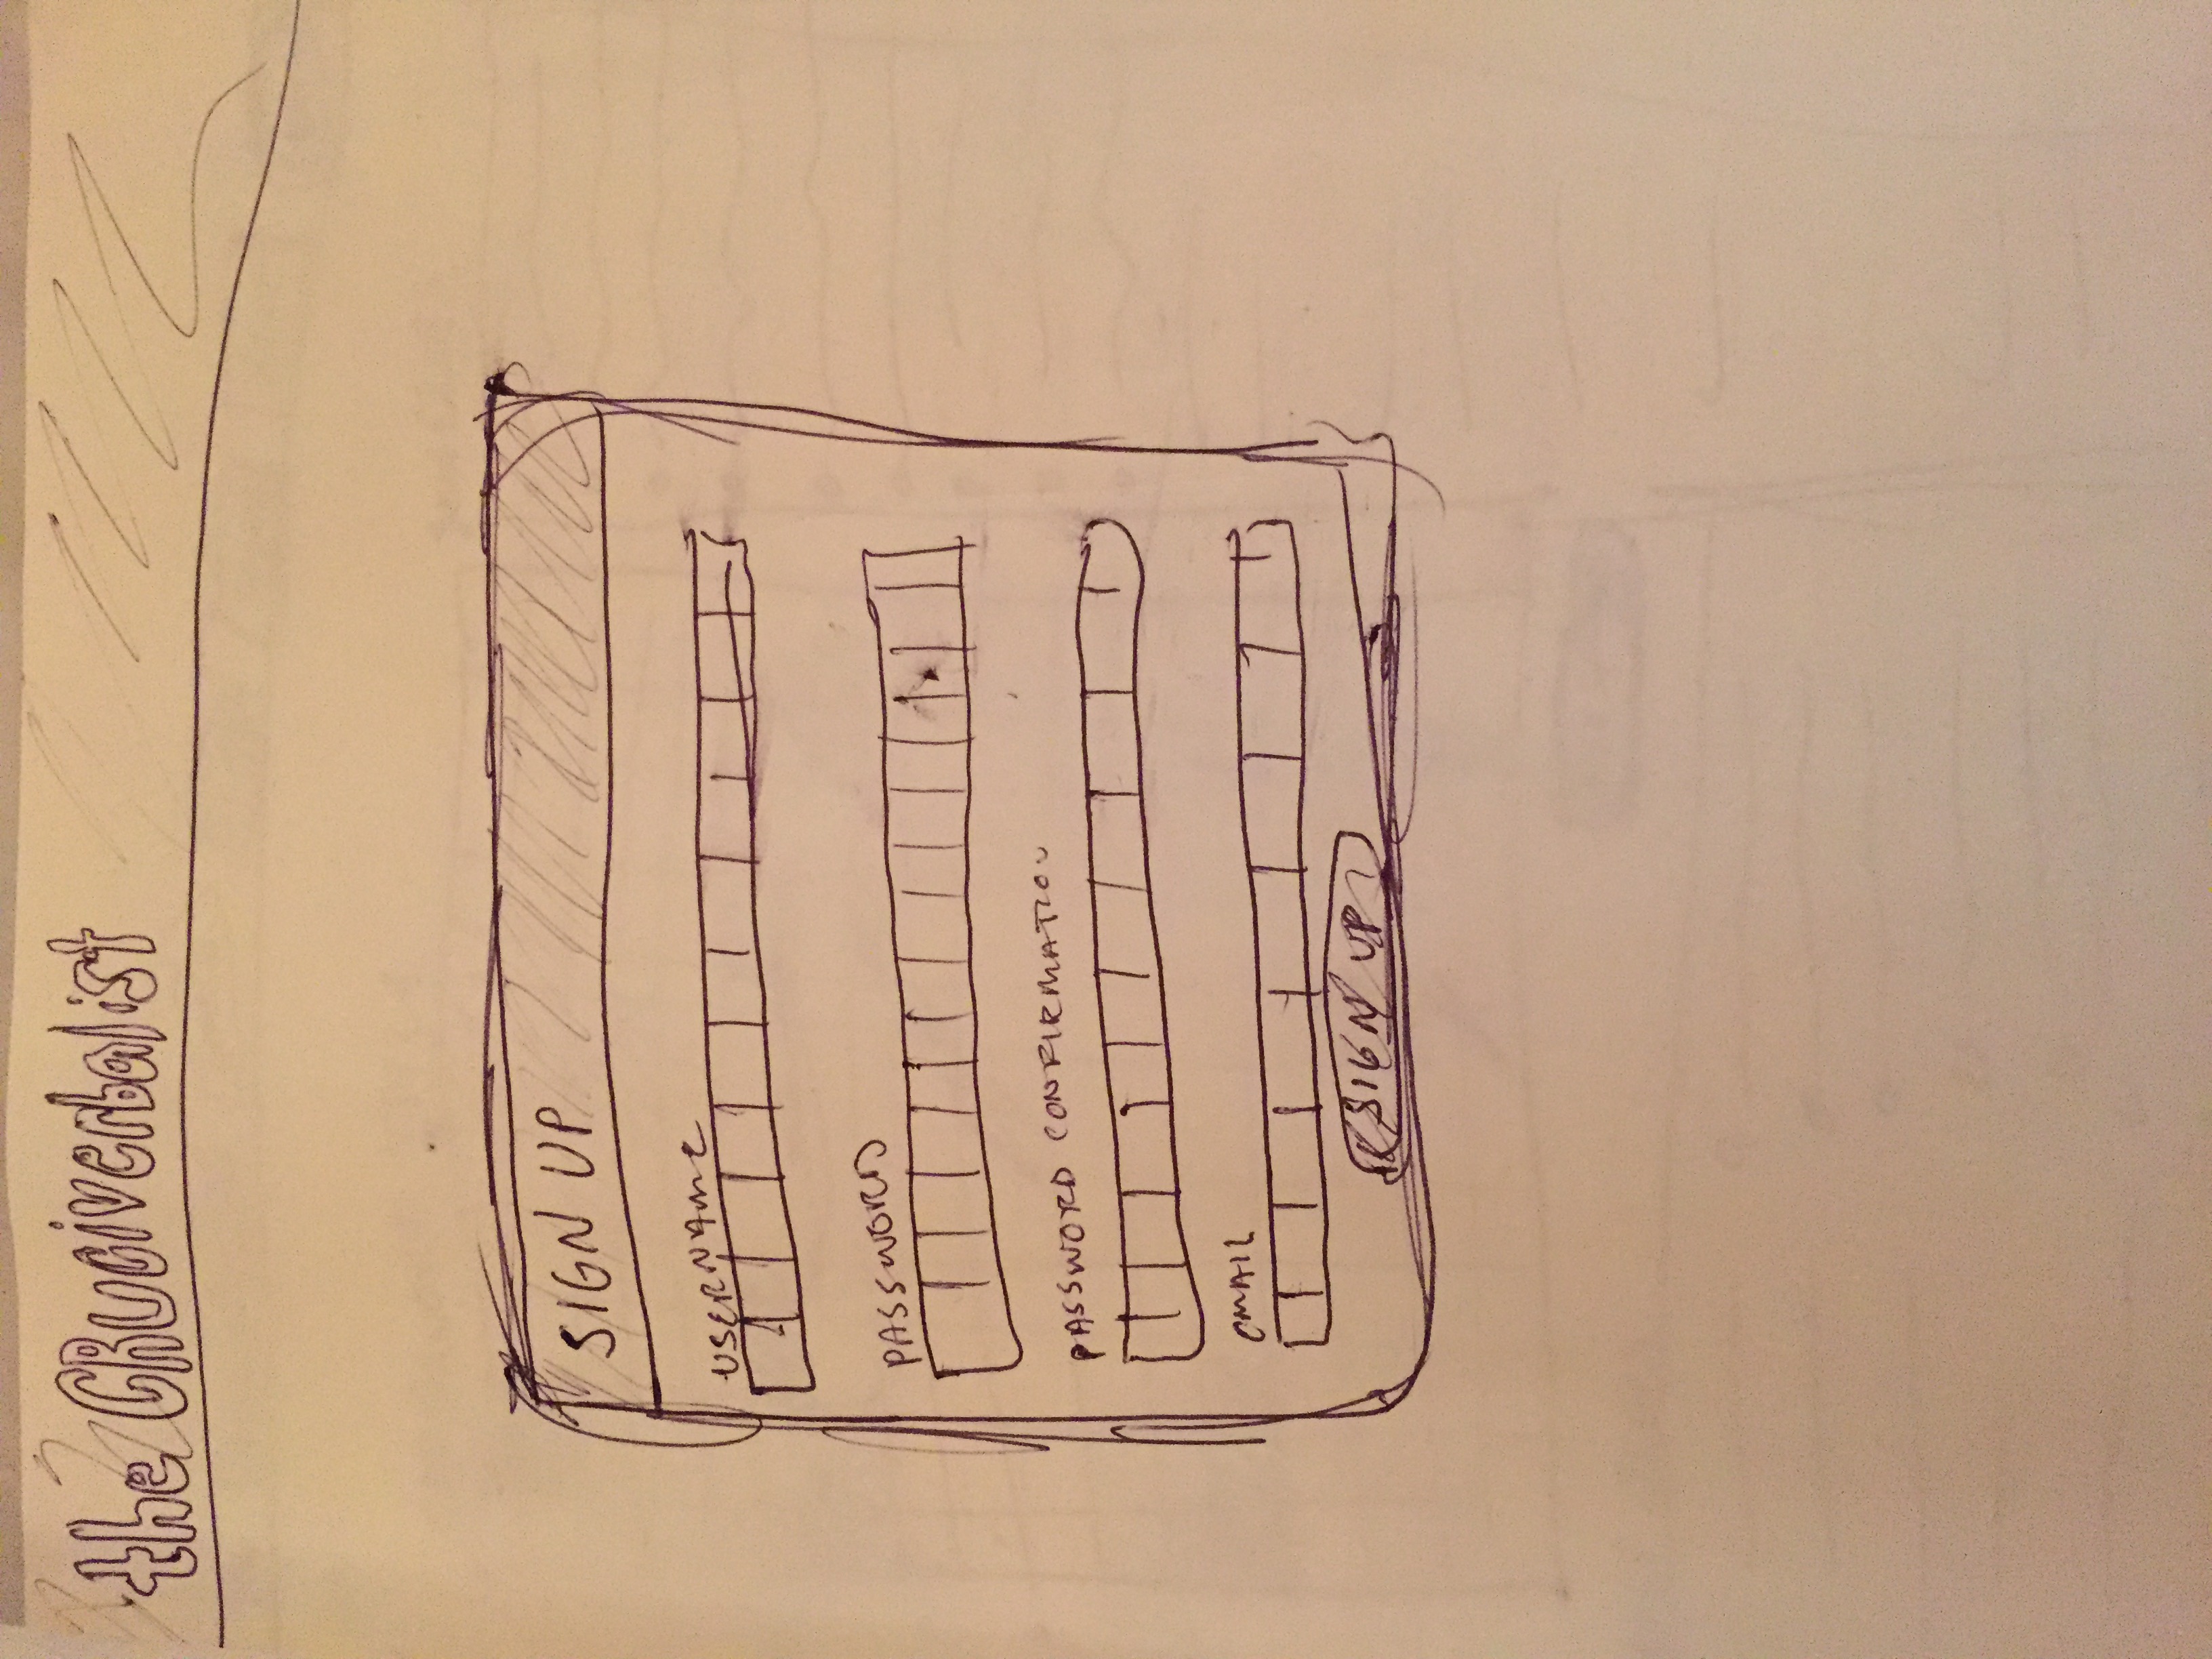 the CRuciverbalist
SIGN UP
USERNAME
PASSWORD
PASSWORD CONFIRMATION
EMAIL
SIGN UP